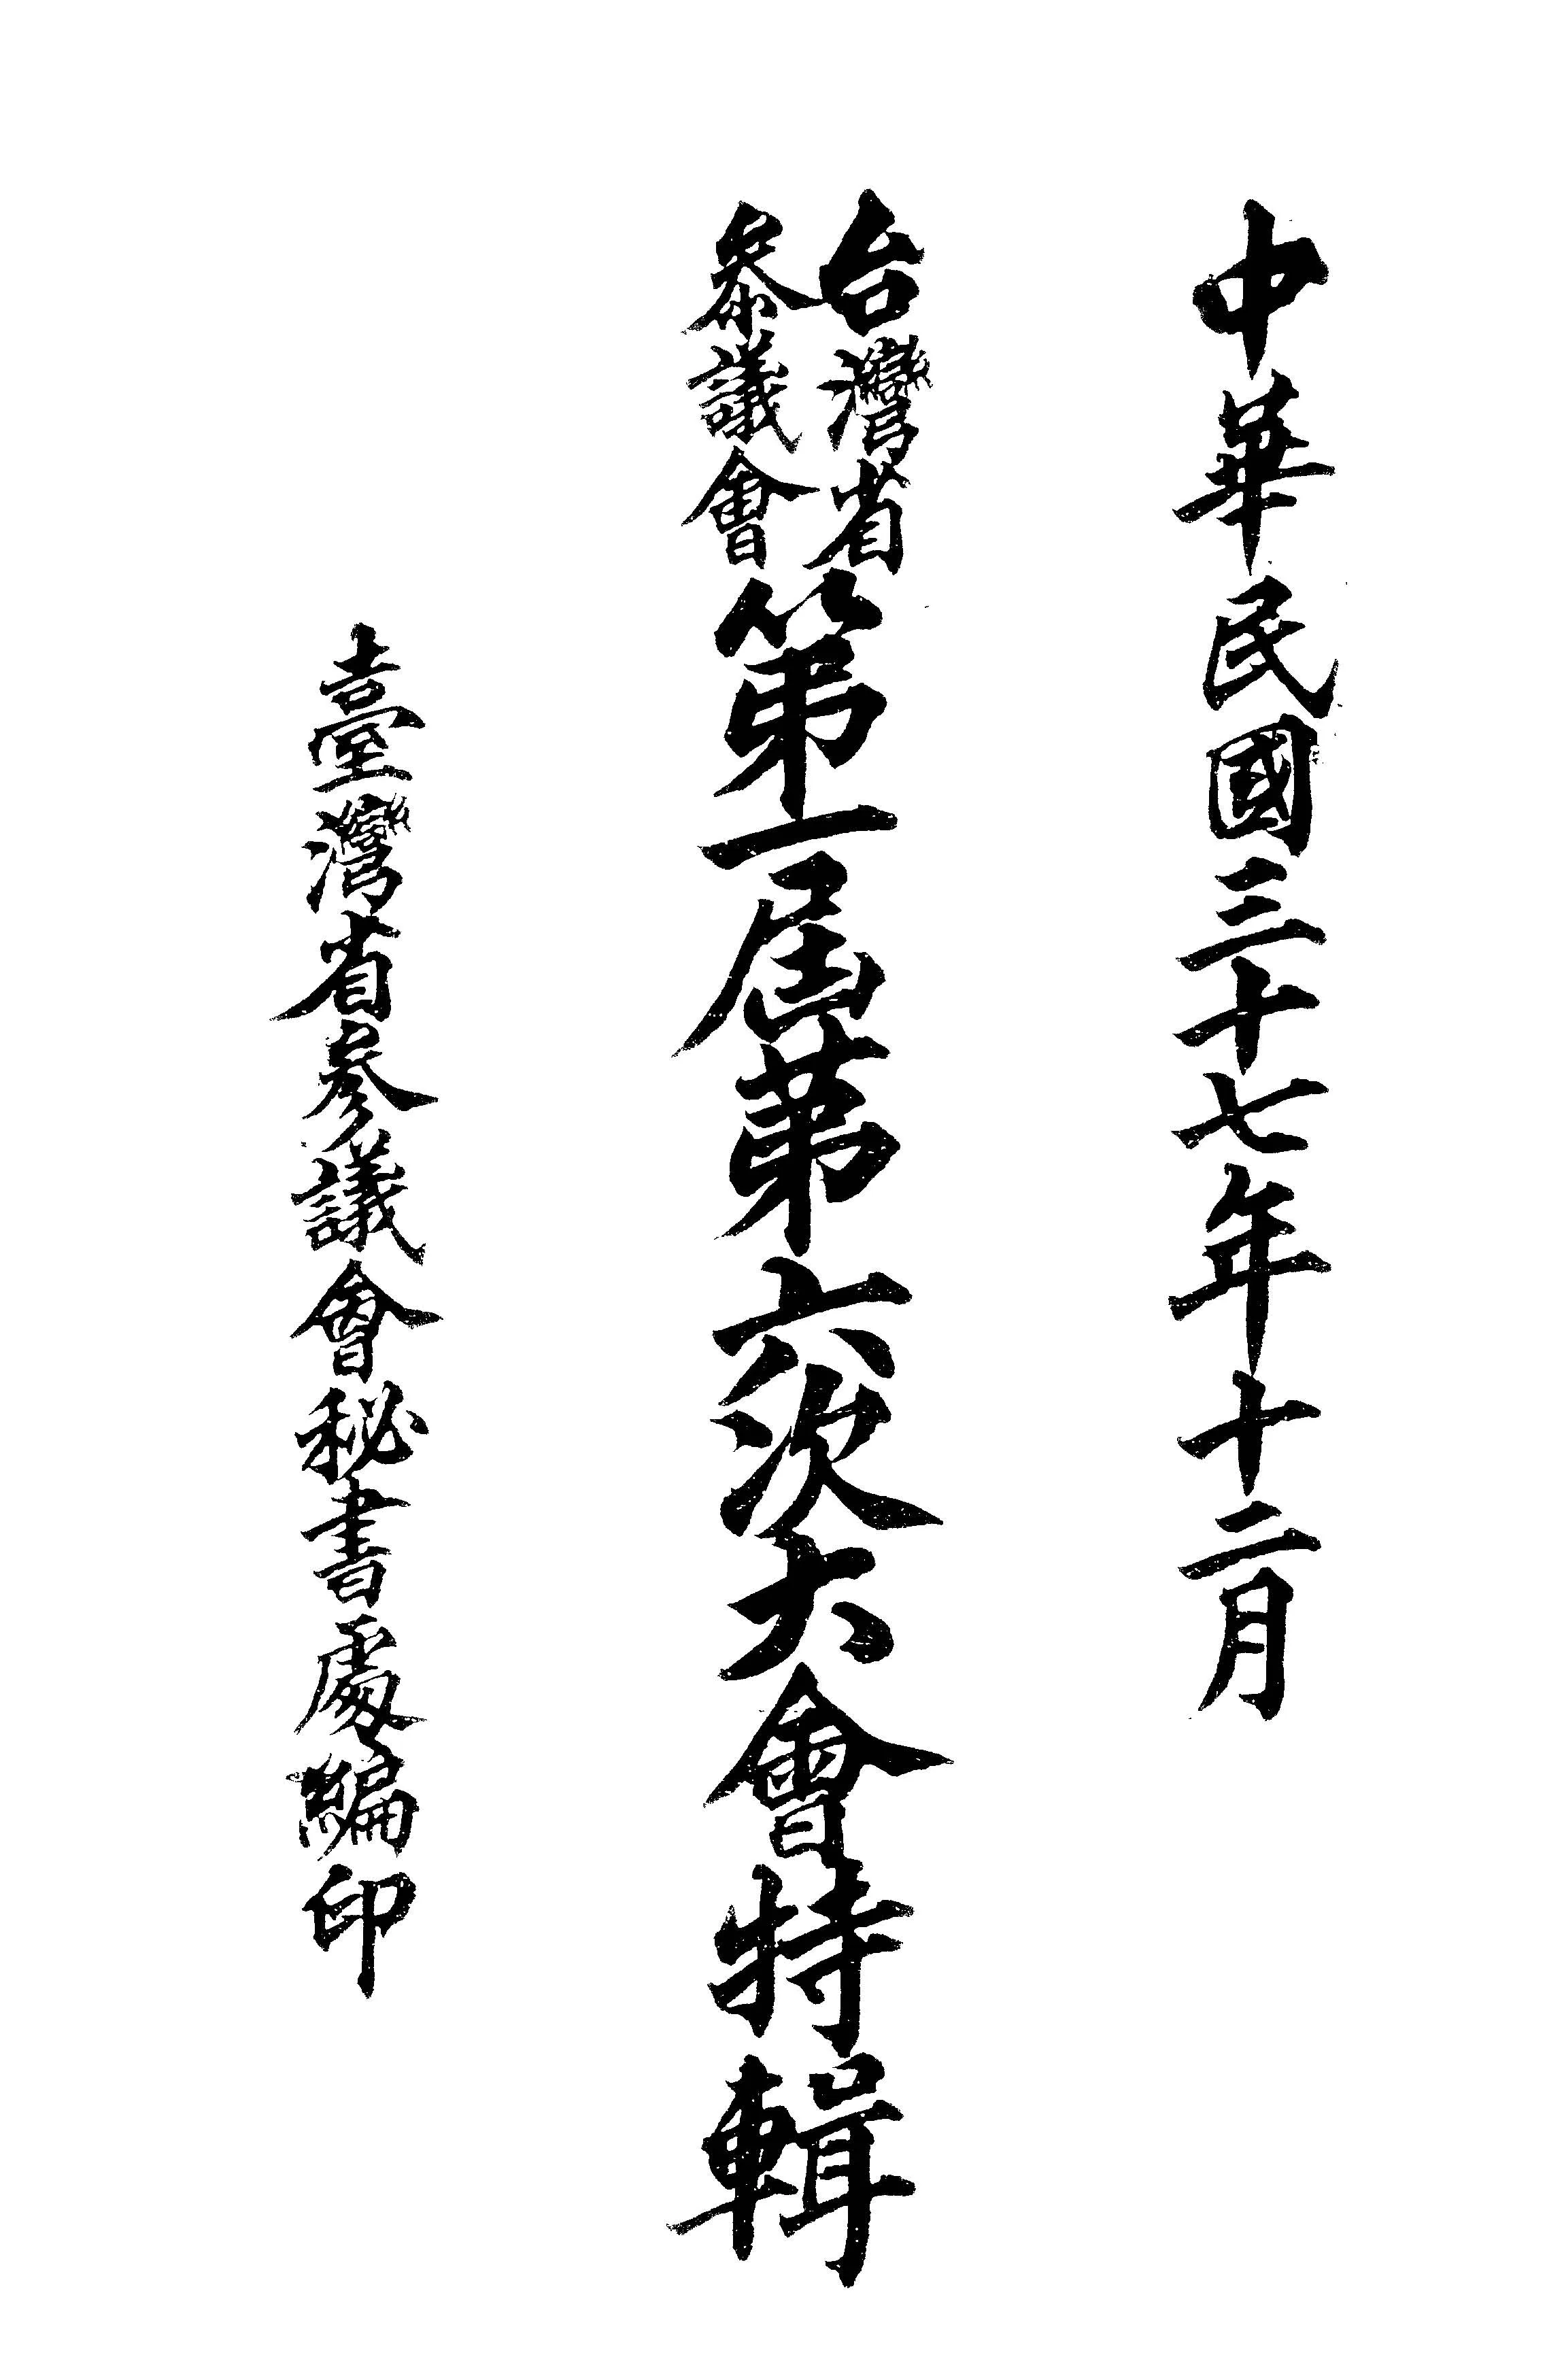 中華民國三十七年十二月
台灣省
參議會
第一屆第六次大會特輯
臺灣省參議會秘書處編印